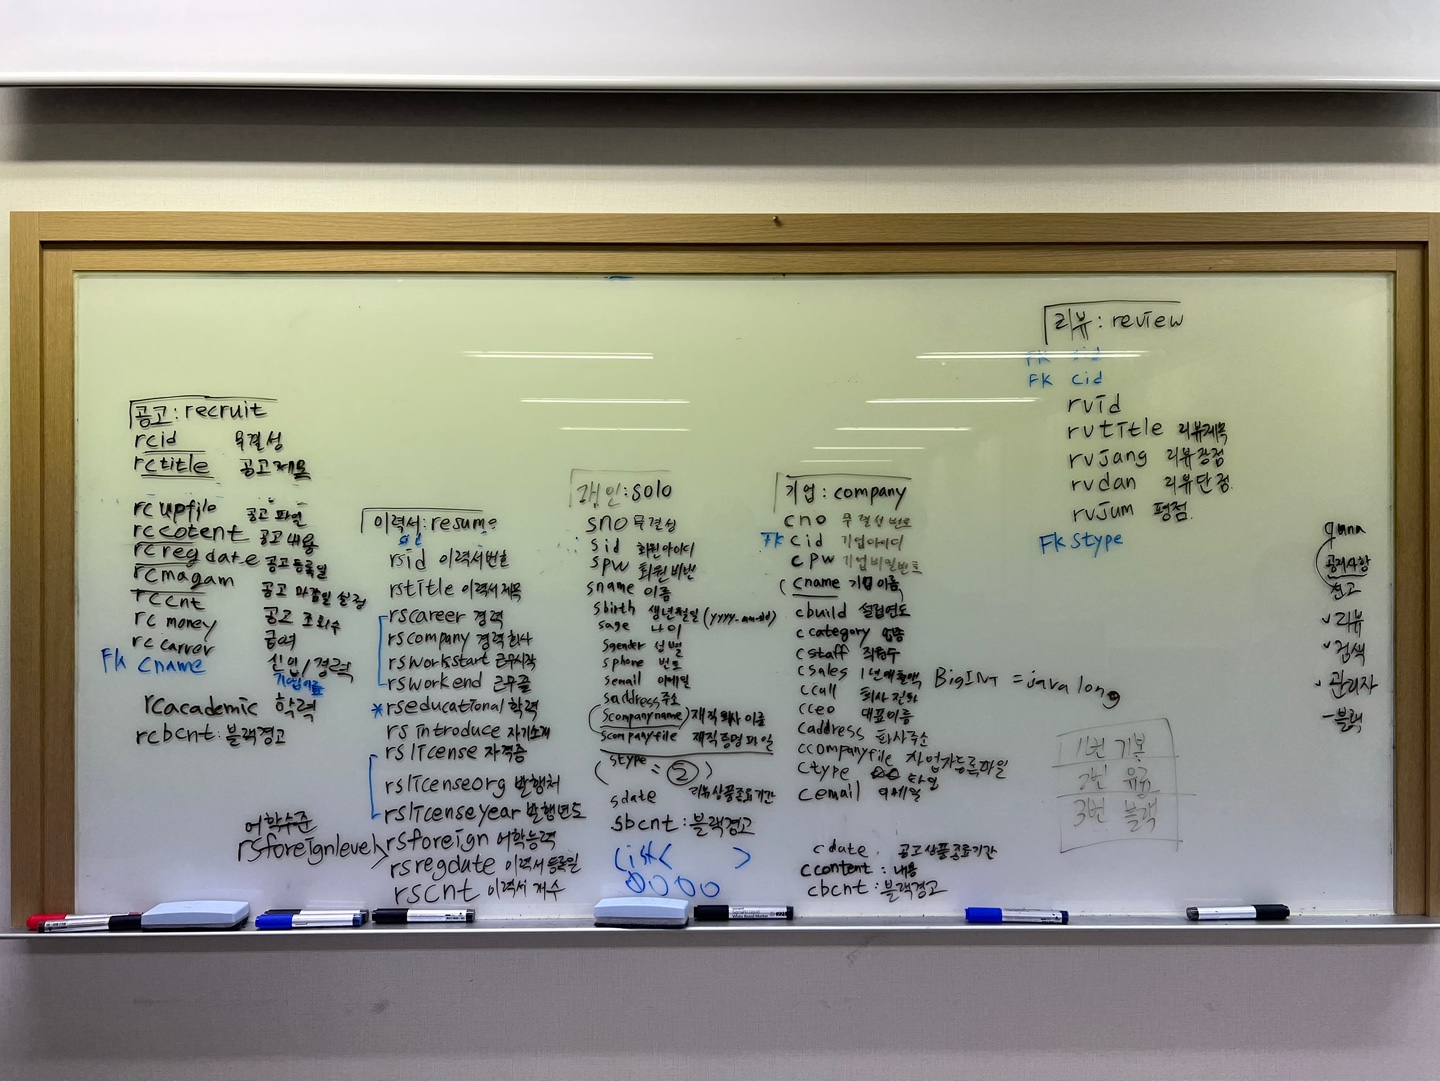 공고 : recruit
rcid 무결성
rctitle 공고제목
rcupfilo 공고 파일
rccotent 공고 내용
rcregdate 공고등록일
rcmagam 공고 마감일 설정
rccnt 공고 조회수
rc money 급여
rc carrer 신인/경력
FK cname 기업이름
rcacademic 학력
rcbcnt : 블랙경고
이력서 : resume
rsid 이력서번호
rstitle 이력서제목
rscareer 경력
rscompany 경력 회사
rsworkstart 근무시작
rsworkend 근무끝
*rseducational 학력
rs introduce 자기소개
rslicense 자격증
rslicenseorg 발행처
rslicenseyear 발행년도
어학수준
rsforeignlevel
rsforeign 어학능력
rsregdate 이력서 등록일
rscnt 이력서 개수
개인 : solo
sno 무결성
sid 회원아이디
spw 회원비번
sname 이름
sbirth 생년월일 (yyyy-mm-dd)
sage 나이
sgender 성별
sphone 번호
semail 이메일
saddress 주소
(scompanyname) 재직회사 이름
scompanyfile 재직증명파일
(stype = 2)
sdate 리뷰상품종료기간
sbcnt : 블랙경고
List< >
기업 : company
cno 무결성번호
FK cid 기업아이디
cpw 기업비밀번호
(cname 기업이름
cbuild 설립연도
ccategory 업종
cstaff 직원수
csales 1년매출액
ccall 회사전화
cceo 대표이름
caddress 회사주소
ccompanyfile 사업자등록파일
ctype 타입
cemail 이메일
cdate 공고상품종료기간
ccontent : 내용
cbcnt : 블랙경고
BigINT = java long
리뷰 : review
FK sid
FK cid
rvid
rvtitle 리뷰제목
rvjang 리뷰장점
rvdan 리뷰단점
rvjum 평점
FK stype
1번 기본
2번 유료
3번 블랙
qnna
공지사항
신고
✓리뷰
✓검색
✓관리자
-블랙